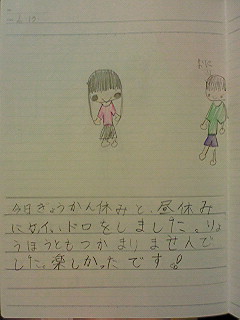 おに
今日ぎょうかん休みと、昼休み
にケイドロをしました。りょ
うほうともつかまりませんで
した。楽しかったです。